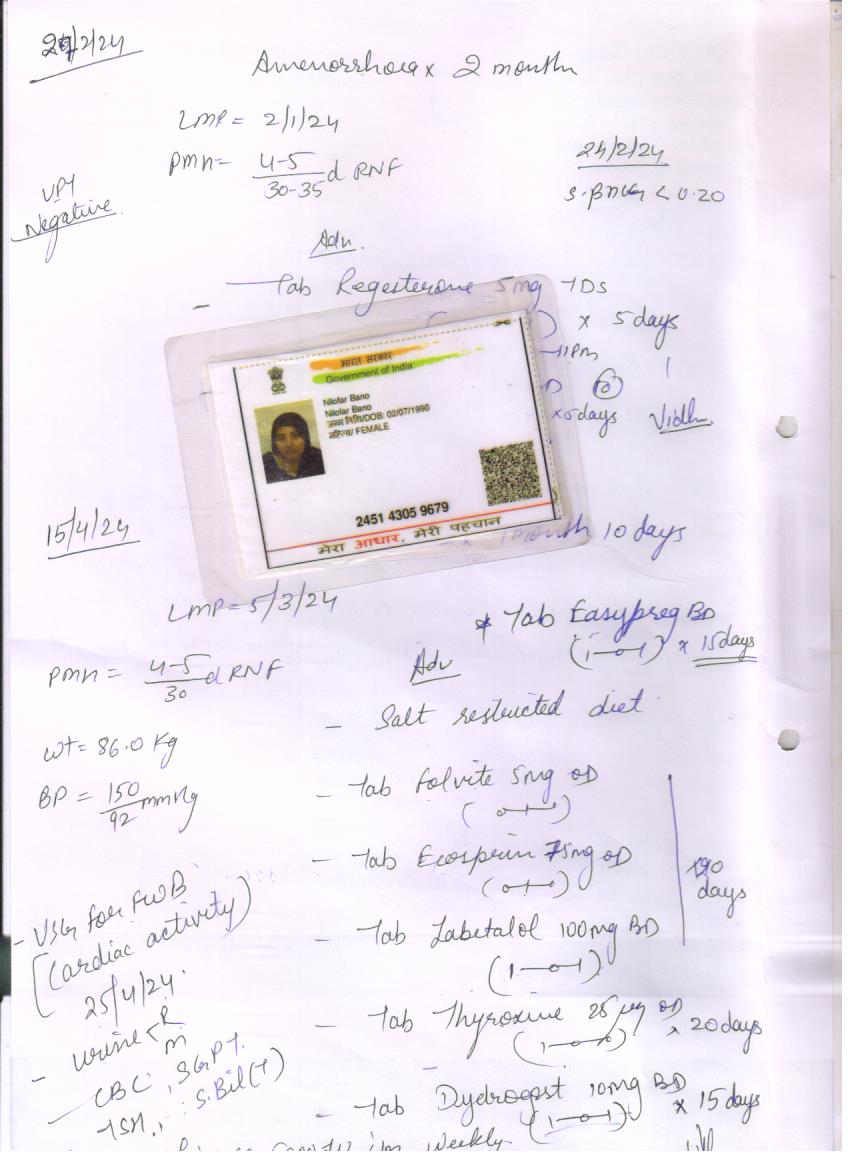 29/2/24
Amenorrhoea x 2 month
LMP = 2/1/24
PMH = 4-5/30-35 d RNF
24/2/24
UPT Negative
S. βHCG < 0.20
Adv.
- Tab Regesterone 5mg TDS
x 5 days
भारत सरकार
Government of India
Nilofar Bano
Nilofar Bano
जन्म तिथि/DOB: 02/07/1990
महिला/ FEMALE
x 5 days
2451 4305 9679
मेरा आधार, मेरी पहचान
15/4/24
x 1 month 10 days
LMP = 5/3/24
* Tab Easypreg BD
(1-0-1) x 15 days
PMH = 4-5/30 d RNF
Adv
- Salt restricted diet
wt = 86.0 Kg
BP = 150/92 mmHg
- Tab Folvite 5mg OD
(0-1-0)
- Tab Ecosprin 75mg OD
(0-1-0)
days
- USG for FWB
[Cardiac activity)
25/4/24
- Tab Labetalol 100mg BD
(1-0-1)
- Urine R M
- Tab Thyroxine 25 µg OD x 20 days
(1-0-0)
- CBC, SGPT.
TSH, S.Bil(T)
- Tab Dydrogest 10mg BD
(1-0-1) x 15 days
weekly